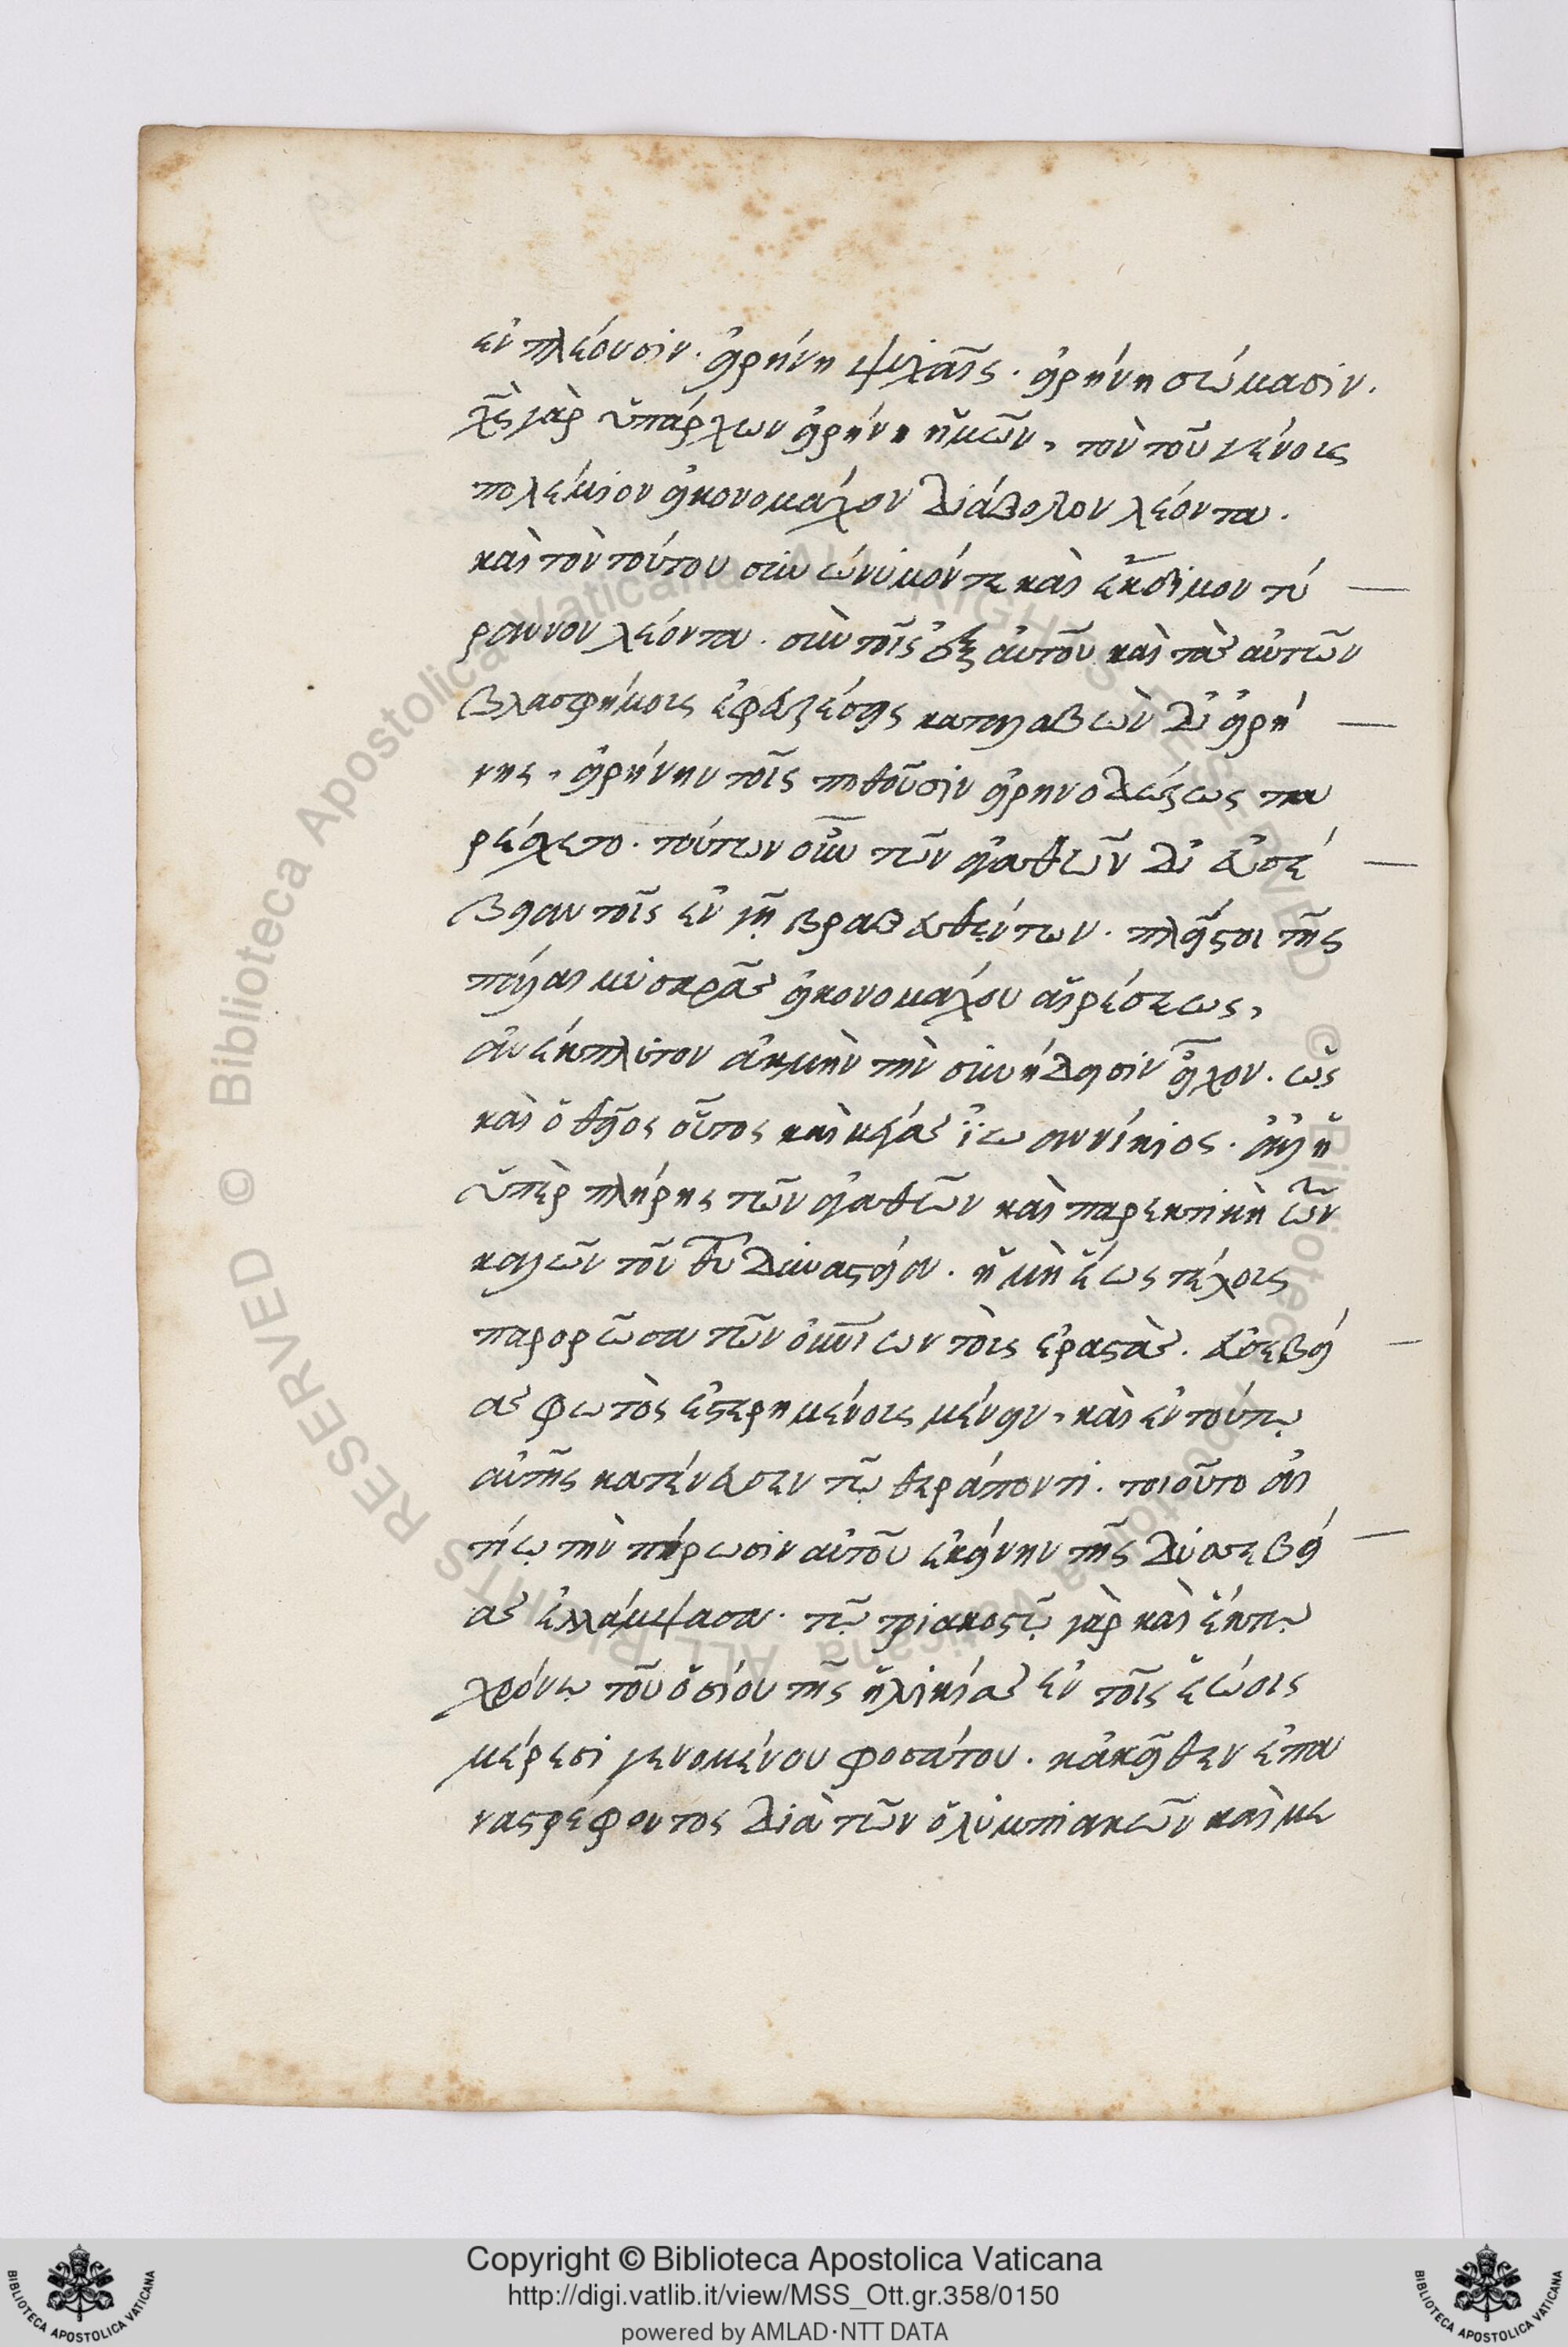 ἐν πλέουσιν· εἰρήνη ψυχαῖς· εἰρήνη σώμασιν·
χς γὰρ ὑπάρχων εἰρήνη ἡμῶν, τὸν τοῦ γένους
πολέμιον εἰκονομάχον διάβολον λέοντα·
καὶ τὸν τούτου συνώνυμόν τε καὶ ἔκθυμον τύ
ραννον λέοντα· σὺν τοῖς ἐξ αὐτοῦ καὶ τὰς αὐτῶν
βλασφήμους ἐφευρέσεις καταλαβὼν δι εἰρή
νης, εἰρήνην τοῖς ποθοῦσιν εἰρηνοδώρως πα
ρείχετο· τούτων οὖν τῶν ἀγαθῶν δι εὐσέ
βειαν τοῖς ἐν γῇ βραβευθέντων· πλεῖστοι τῆς
παλαι μυσαρᾶς εἰκονομάχου αἱρέσεως,
ἀνέκπλυτον ἀκμὴν τὴν συνείδησιν εἶχον· ὡς
καὶ ὁ θεῖος οὗτος καὶ μέγας ἰωαννίκιος· ἀλλ ἡ
ὑπὲρ πλήρης τῶν ἀγαθῶν καὶ παρεκτικὴ τῶν
καλῶν τοῦ θυ δυναστεία· ἡ μὴ ἕως τέλους
παρορῶσα τῶν οἰκείων τοὺς ἐραστὰς· εὐσεβεί
ας φωτὸς ἐστερημένους μένειν, καὶ ἐν τούτῳ
αὐτῆς κατένευσεν τῷ θεράποντι· τοιούτῳ αἰ
τίῳ τὴν πήρωσιν αὐτοῦ ἐκείνην τῆς δυσσεβεί
ας ἐλλάμψασα· τῷ τριακοστῷ γὰρ καὶ ἕκτῳ
χρόνῳ τοῦ ὁσίου τῆς ἡλικίας ἐν τοῖς ἑώοις
μέρεσι γενομένου φοσάτου· κἀκεῖθεν ἐπα
ναστρέφοντος διὰ τῶν ὀλυμπιακῶν καὶ με
Copyright © Biblioteca Apostolica Vaticana
http://digi.vatlib.it/view/MSS_Ott.gr.358/0150
powered by AMLAD·NTT DATA